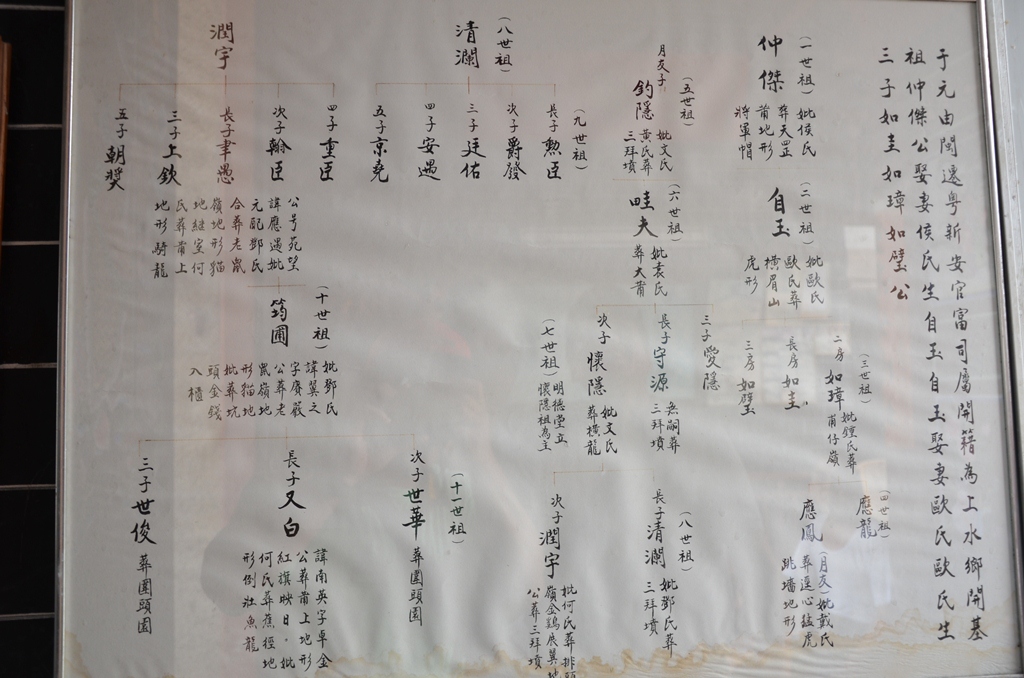 于元由閩遷粵新安官富司屬開籍為上水鄉開基
祖仲傑公娶妻侯氏生自玉自玉娶妻歐氏歐氏生
三子如圭如璋如璧公
(一世祖)
仲傑
妣侯氏
葬天罡
莆地形
將軍帽
(二世祖)
自玉
妣歐氏
歐氏葬
橫眉山
虎形
(三世祖)
二房 如璋
妣鍾氏葬
莆仔嶺
長房 如圭
三房 如璧
(四世祖)
應龍
應鳳
(月友)妣戴氏
葬逕心猛虎
跳墻地形
(五世祖)
月友子
釣隱
妣文氏
黃氏葬
三拜墳
(六世祖)
畦夫
妣袁氏
葬大莆
三子 愛隱
長子 守源
無嗣葬
三拜墳
次子 懷隱
妣文氏
葬橫龍
(七世祖)
明德堂立
懷隱祖為主
(八世祖)
長子 清瀾
妣鄧氏葬
三拜墳
次子 潤宇
妣何氏葬排頭
嶺金鷄展翼地
公葬三拜墳
(八世祖)
清瀾
(九世祖)
長子 勲臣
次子 爵發
三子 廷佑
四子 安遇
五子 京堯
潤宇
四子 重臣
次子 翰臣
長子 聿愚
三子 上欽
五子 朝獎
公号苑望
諱應遇妣
元配鄧氏
合葬老鼠
嶺地形貓
地繼室何
氏葬莆上
地形騎龍
(十世祖)
筠圃
妣鄧氏
諱翼之
字賡嚴
公葬老
鼠嶺地
形貓地
妣葬坑
頭金錢
入櫃
(十一世祖)
次子 世華 葬圍頭園
長子 又白
諱南英字卓金
公葬莆上地形
紅旗映日。妣
何氏葬蕉徑地
形倒壯魚龍
三子 世俊 葬圍頭園